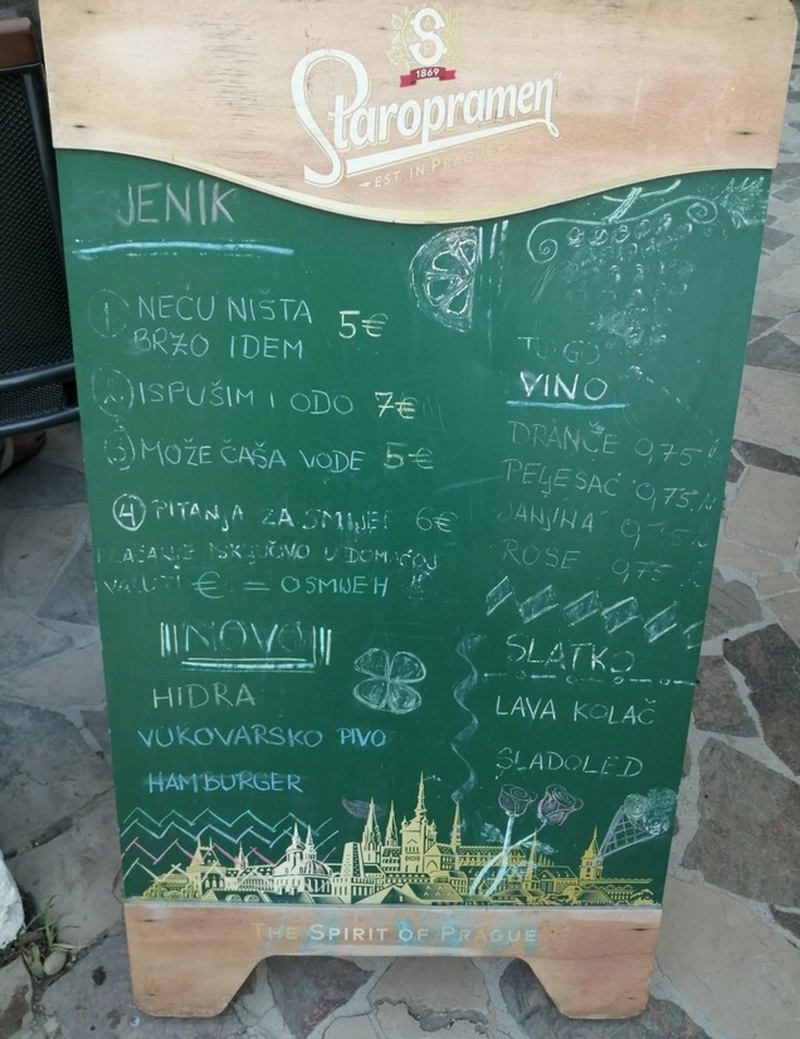 S
1869
Staropramen
EST. IN PRAGUE
JENIK
1 NEĆU NIŠTA 5€
BRZO IDEM
2 ISPUŠIM I ODO 7€
3 MOŽE ČAŠA VODE 5€
4 PITANJA ZA SMIJEH 6€
PLAĆANJE ISKLJUČIVO U DOMAĆOJ
VALUTI € = OSMIJEH
NOVO
HIDRA
VUKOVARSKO PIVO
HAMBURGER
TO GO
VINO
DRANČE 0,75
PELJEŠAC 0,75
JANJINA 0,75
ROSE 0,75
SLATKO
LAVA KOLAČ
SLADOLED
THE SPIRIT OF PRAGUE